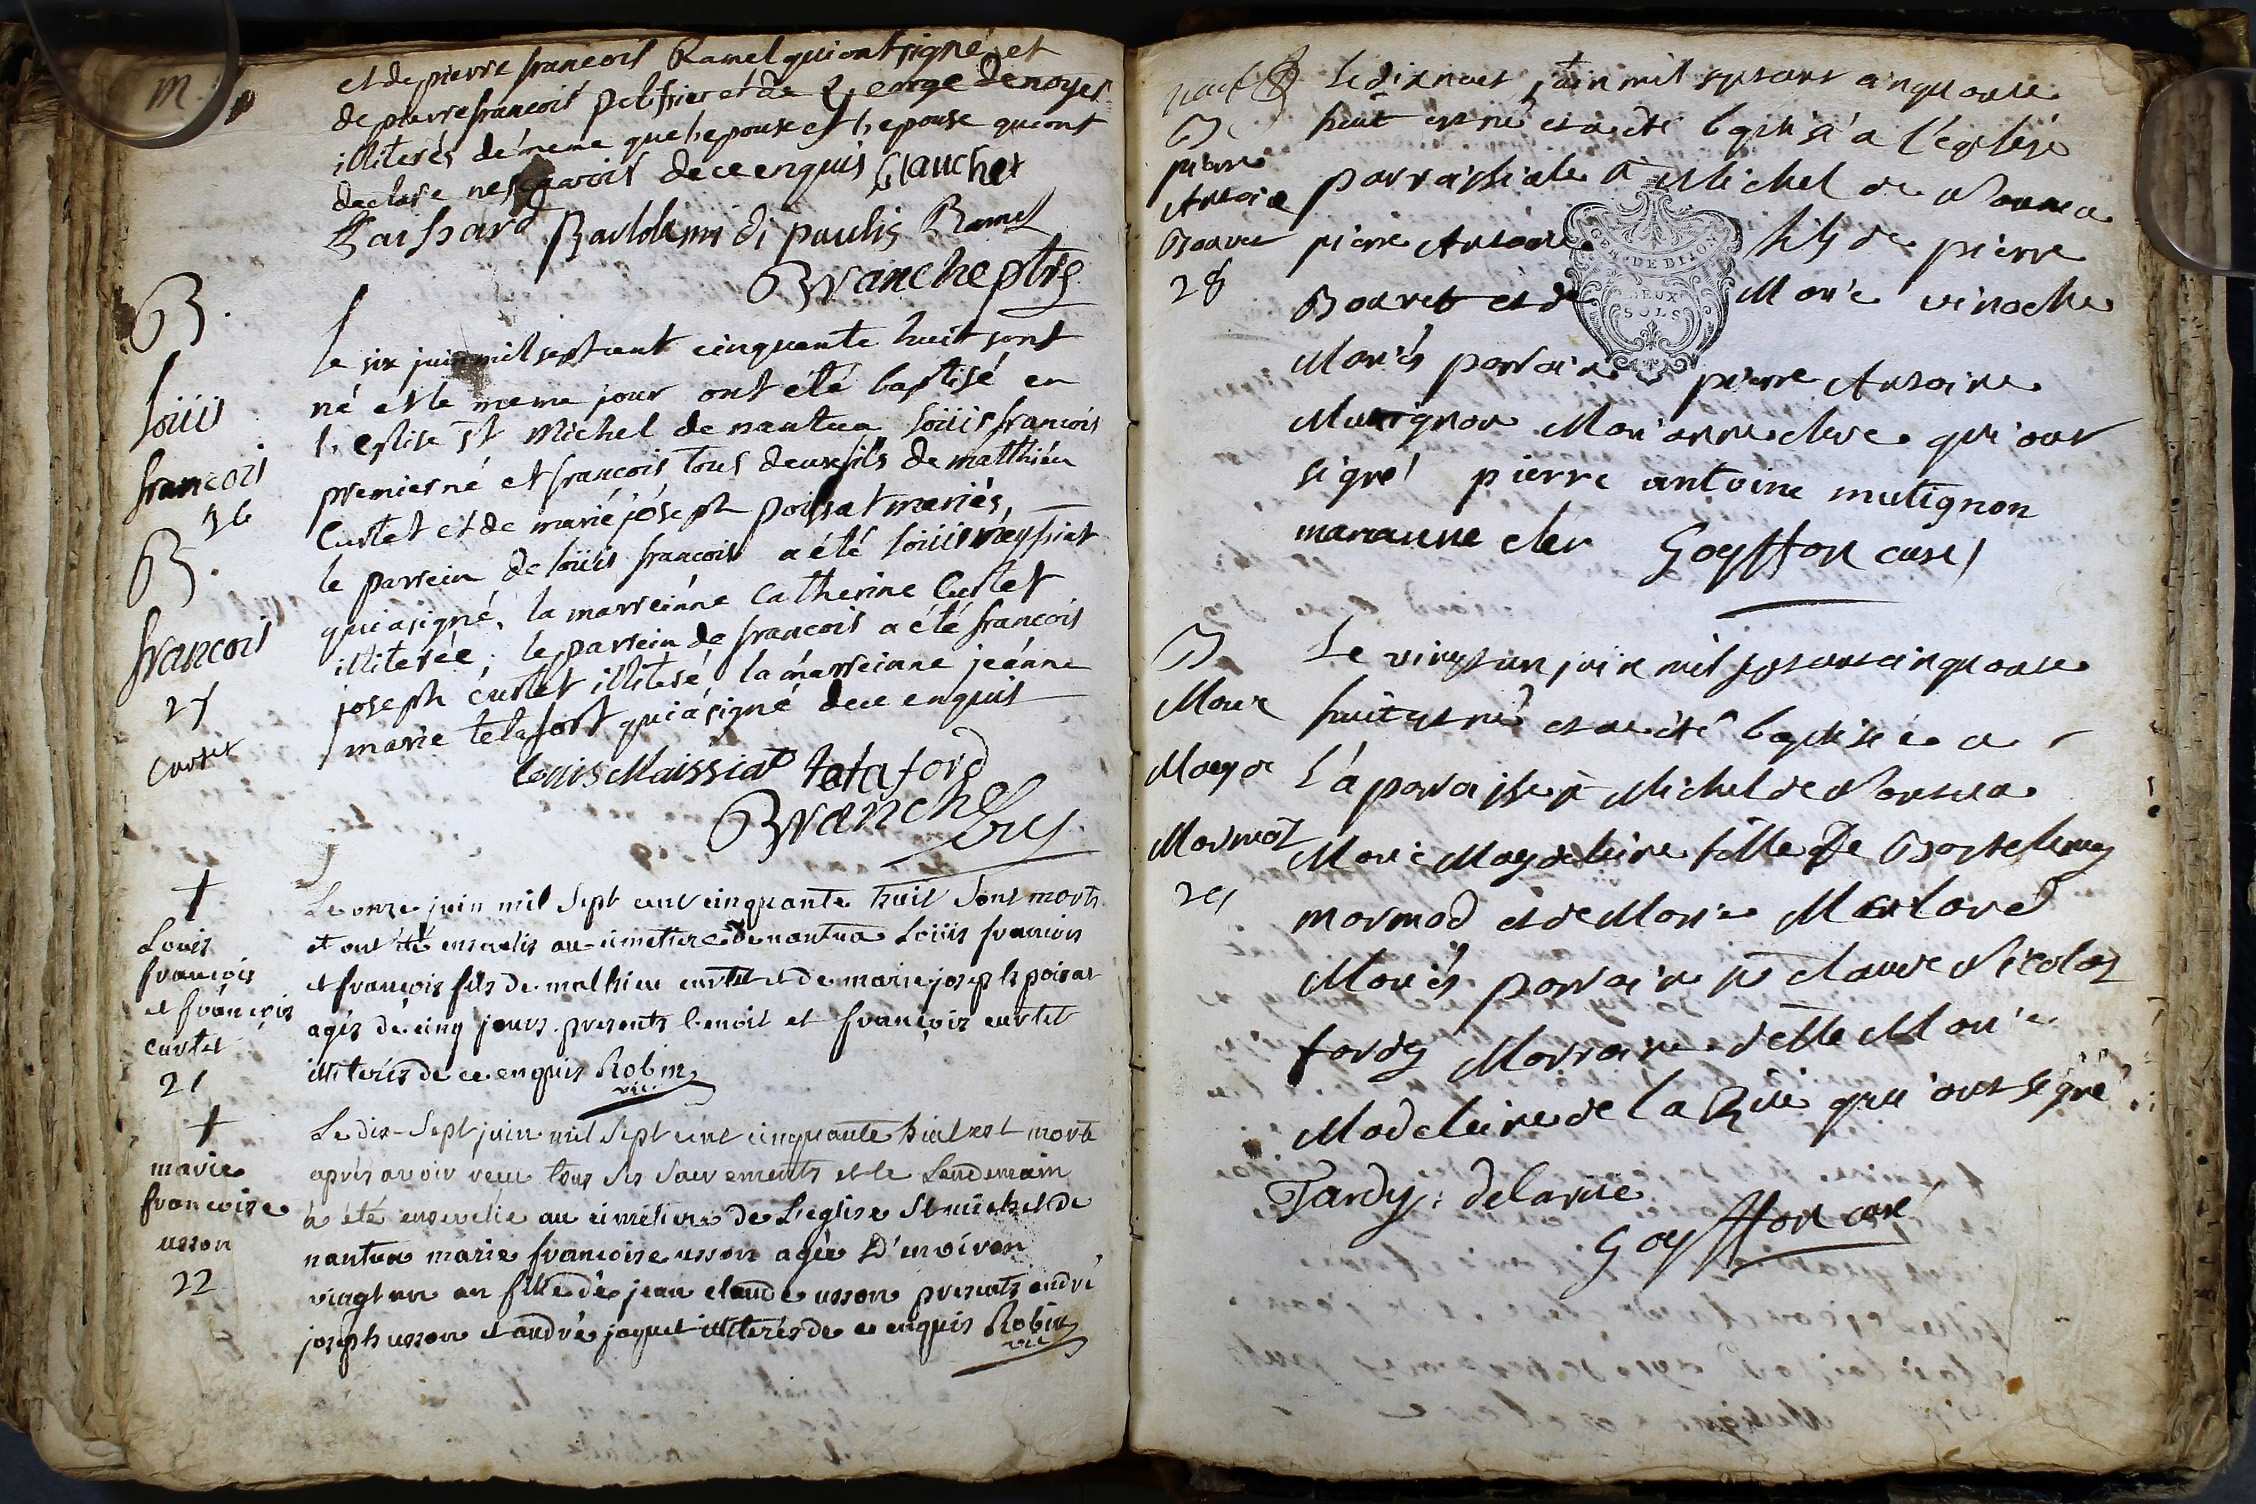 m.
et de pierre francois Ramel qui ont signé et
de pierre francois pelissier et de George denoyer
illiterés de meme que lepoux et lepouse qui ont
declare ne scavoir de ce enquis Blanchet
Baishard Bartolemi di paulis Ramel
Branche ptre
B.
Loüis
francois
26
B.
francois
27
Curtet
Le six juin mil sept cent cinquante huit sont
né et le meme jour ont été baptisé en
l'eglise St Michel de nantua loüis francois
premier né et francois tous deux fils de matthieu
Curtet et de marie joseph poisat mariés,
le parrein de loüis francois a été loüis meyssiat
qui a signé, la marreinne Catherine Curtet
illiterée; le parrein de francois a été francois
joseph curtet illiteré la marreinne jeanne
marie tetafort qui a signé de ce enquis
louis Maissiat tetaford
Branche vic
†
Louis
françois
et françois
curtet
21
Le onze juin mil sept cent cinquante huit sont morts
et ont été enseuelis au cimettere de nantua Loüis francois
et françois fils de mathieu curtet et de marie joseph poisat
agés de cinq jours presents benoit et françois curtet
illiterés de ce enquis Robin
vic.
†
marie
francoise
usson
22
Le dix-sept juin mil sept cent cinquante huit est morte
après avoir receu tous ses sacrements et le lendemain
a été ensevelie au cimetiere de L'eglise St michel de
nantua marie francoise usson agée D'environ
vingt un an fille de jean claude usson presents andré
joseph usson et andré jaquet illiterés de ce enquis Robin
vic
B
pierre
Antoine
Bouvet
28
Le dixneuf juin mil sept cent cinquante
huit est né et a été baptisé a l'eglise
parroissiale St Michel de Nantua
pierre Antoine fils de pierre
Bouvet et de Marie vinoche
Mariés parrain pierre Antoine
Mutignon Marianne clere qui ont
signé pierre antoine mutignon
marianne cler Goyffon curé
GEN. DE DIJON
DEUX
SOLS
B
Marie
Magde
Mormod
29
Le vingt un juin mil sept cent cinquante
huit est né et a été baptisée a
La paroisse St Michel de Nantua
Marie Magdeleine fille de Bartelemy
mormod et de Marie
Mariés parrain Sr claude Nicolas
tardy Marraine delle Marie
Madeleine de la Rüe qui ont signé
Tardy; delarüe
Goyffon curé